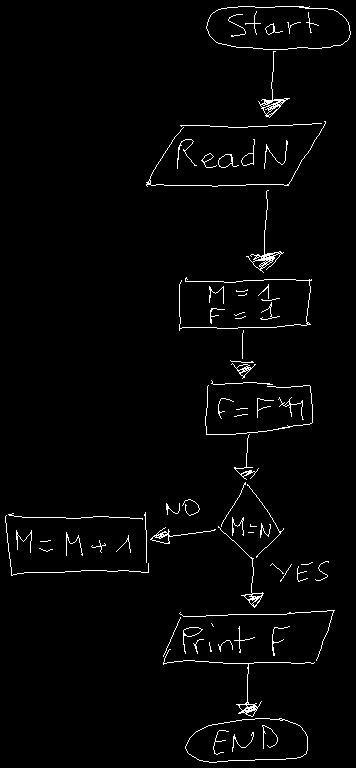 Start
Read N
M = 1
F = 1
F = F * M
M = N
NO
M = M + 1
YES
Print F
END